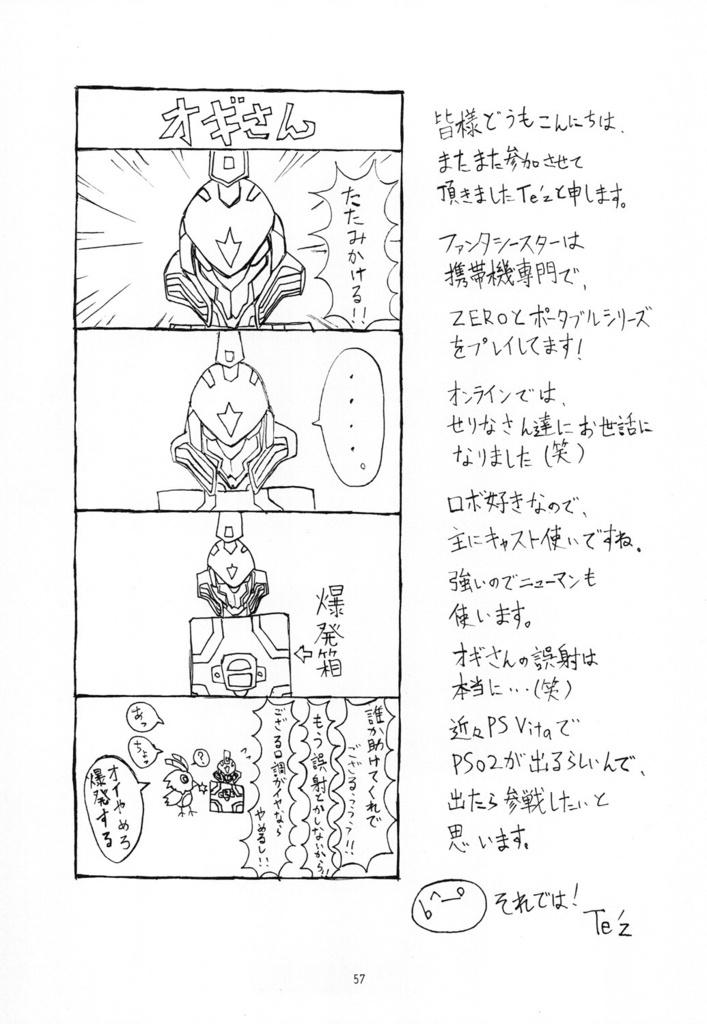 オギさん
たたみかける!!
・・・・。
爆発箱
誰か助けてくれで
ござるぅぅぅぅ!!
もう誤射とかしないから!!
ござる口調がイヤなら
やめるし!!
?
あっ
ちょっ
オイやめろ
爆発する
皆様どうもこんにちは、
またまた参加させて
頂きましたTe'zと申します。
ファンタシースターは
携帯機専門で、
ZEROとポータブルシリーズ
をプレイしてます!
オンラインでは、
せりなさん達にお世話に
なりました(笑)
ロボ好きなので、
主にキャスト使いですね。
強いのでニューマンも
使います。
オギさんの誤射は
本当に…(笑)
近々PS Vitaで
PSO2が出るらしいんで、
出たら参戦したいと
思います。
それでは!
Te'z
57